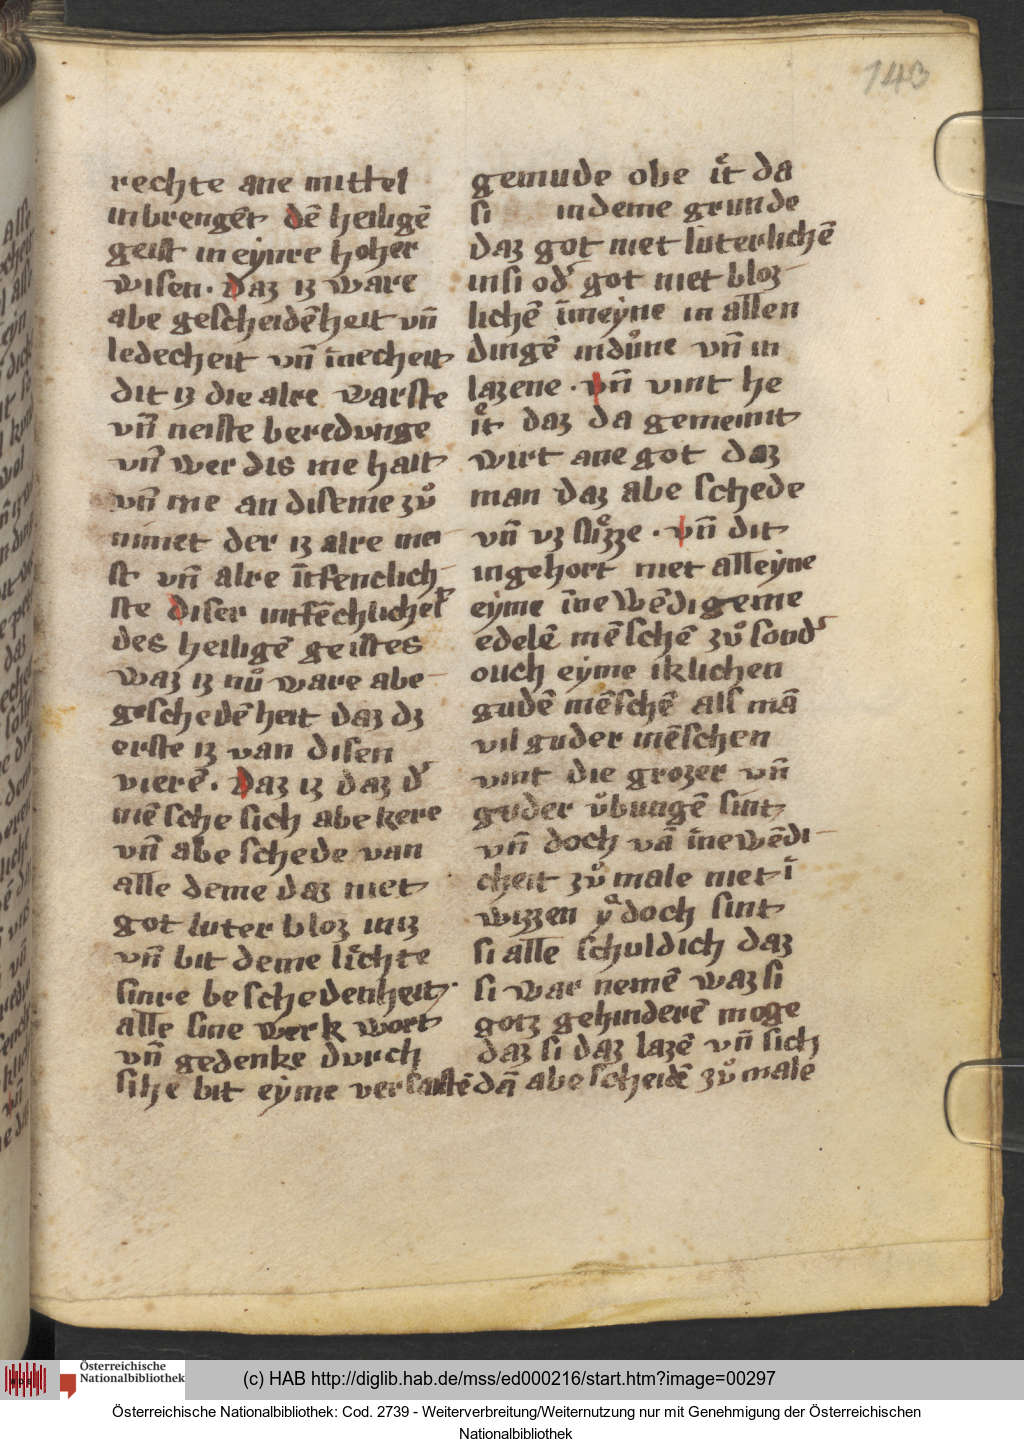 143
rechte ane mittel
inbrengēt dē heiligē
geist in eynre hoher
wisen. daz iz ware
abe gescheidēheit vn̄
ledecheit vn̄ īnecheit
dit iz die alre warste
vn̄ neiste beredunge
vn̄ wer dis nie hait
vn̄ me an diseme zuͦ
nimet der iz alre mei
st vn̄ alre īt fenclich
ste diser intfēchlicheit
des heiligē geistes
waz iz nuͦ ware abe
geschedēheit daz dz
erste iz van disen
vierē. Daz iz daz d'
mēsche sich abe kere
vn̄ abe schede van
alle deme daz niet
got luter bloz iniz
vn̄ bit deme lichte
sinre beschedenheit
alle sine werk wort
vn̄ gedenke durch
sihe bit eyme verstātē
gemude obe iͭt da
si in deme grunde
daz got niet luterlichē
insi od' got niet bloz
lichē īmeyne in allen
dingē induͦne vn̄ in
lazene. vn̄ vint he
iͭt daz da gemeinit
wirt ane got daz
man daz abe schede
vn̄ vz sluͦzze. vn̄ dit
ingehort niet alleyne
eyme īnewēdigeme
edelē mēschē zuͦ sond'
ouch eyme iklichen
gudē mēschē als mā
vil guder mēschen
vint die grozer vn̄
guder uͦbungē sint
vn̄ doch vā īnewēdi
cheit zuͦ male niet ī
wizzen yͣ doch sint
si alle schuldich daz
si war nemē waz si
gotz gehinderē moge
daz si daz lazē vn̄ sich
dā abe scheidē zuͦ male
(c) HAB http://diglib.hab.de/mss/ed000216/start.htm?image=00297
Österreichische
Nationalbibliothek
Österreichische Nationalbibliothek: Cod. 2739 - Weiterverbreitung/Weiternutzung nur mit Genehmigung der Österreichischen
Nationalbibliothek